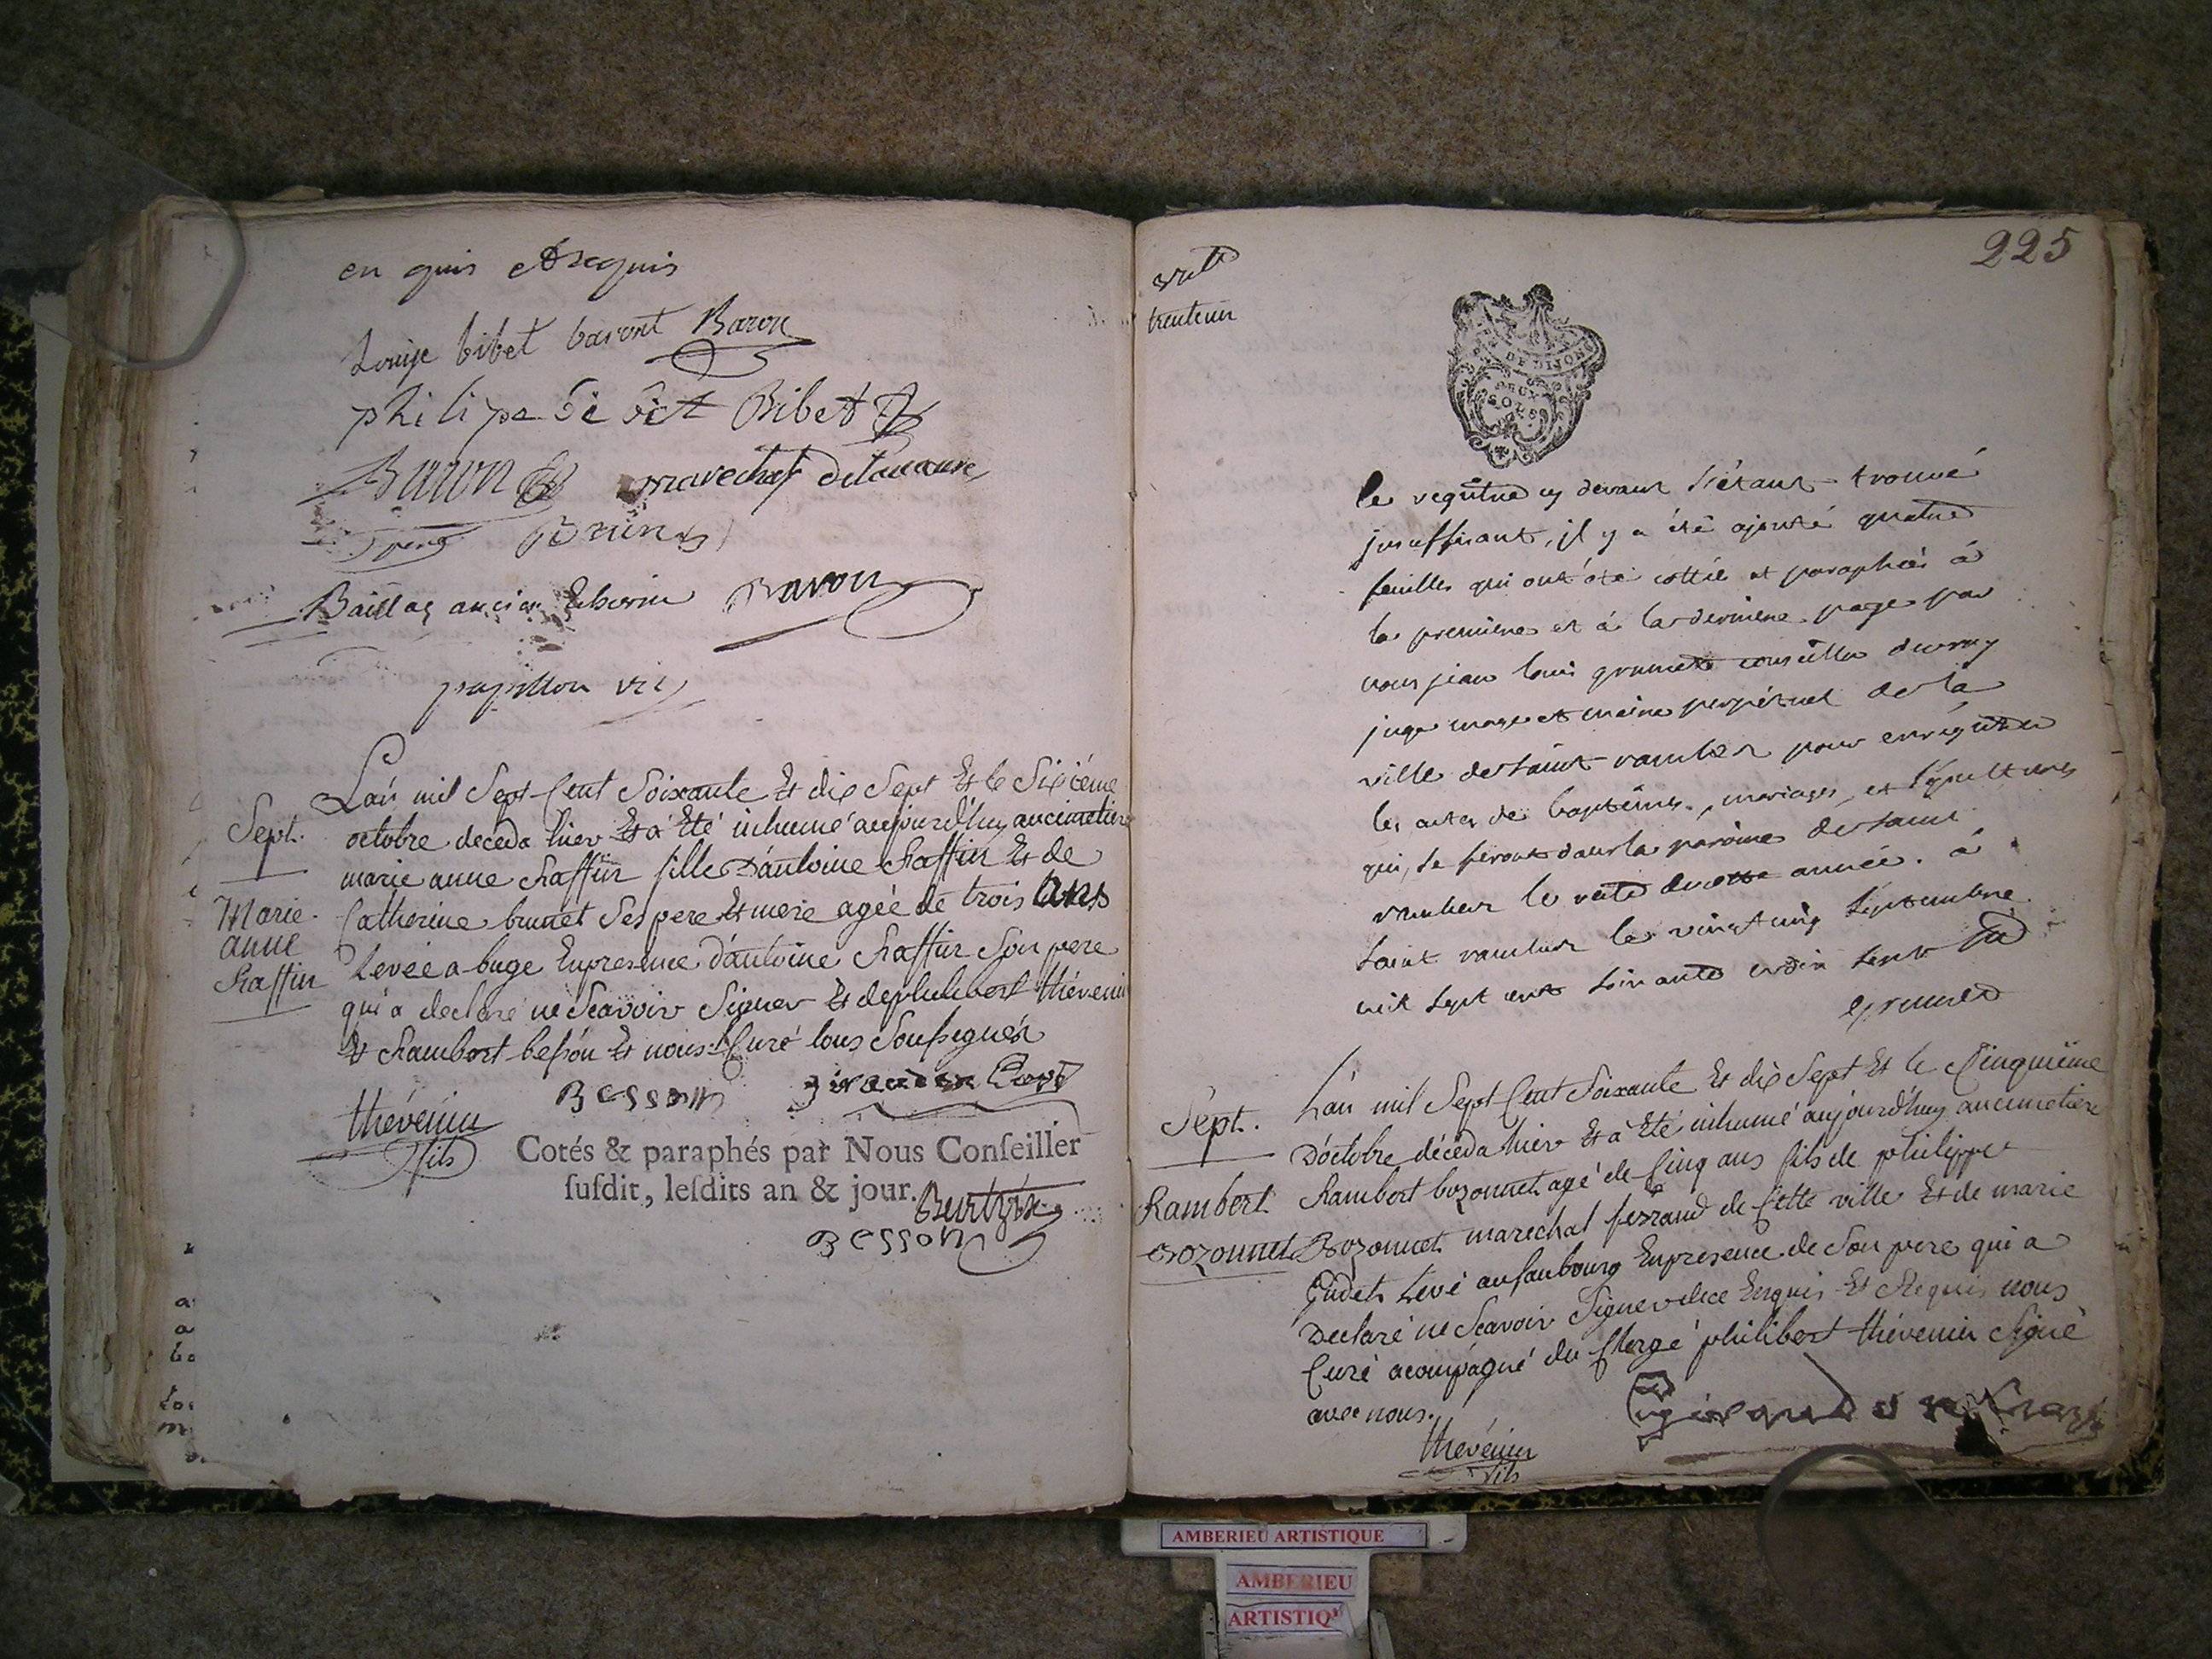 en quis et Requis
Louise bibet baront Baron
philipe bibet Bibet
Baron marechal delavavre
père Brun
Baillat ancien Echevin Baron
papillon vic
Lán mil Sept Cent Soixante Et dix Sept Et le Sixiéme
Sept. octobre deceda hier Et a Eté inhumé aujourd'huy au cimetiere
marie anne Raffin fille D'antoine Raffin Et de
Marie Catherine brunet Ses pere Et mere agée de trois ans
anne
Raffin Levée a buge En presence d'antoine Raffin Son pere
qui a declaré ne Scavoir Signer Et de philibert thévenin
Et Rambert besson Et nous Curé tous Soussignés
Besson giraudon Curé
thévenin
fils
Cotés & paraphés par Nous Conseiller
susdit, lesdits an & jour.
Besson
225
trenteun
DE DIJON
DEUX
SOLS
le registre cy devant s'étant trouvé
insuffisant, il y a été ajouté quatre
feuilles qui ont été cottée et paraphées á
la premiere et á la derniere page par
nous jean louis grumet conseiller du roy
juge mage et maire perpétuel de la
ville de saint rambert pour enrégistrer
les actes de baptêmes, mariages, et sépultures
qui, se feront dans la paroisse de saint
rambert le reste de cette année. á
saint rambert le vingt cinq septembre
mil sept cent soixante et dix sept
grumet
Lán mil Sept Cent Soixante Et dix Sept Et le Cinquiéme
Sept. D'octobre décéda hier Et a Eté inhumé aujourd'huy au cimetiere
Rambert Rambert bozonnet agé de Cinq ans fils de philippe
Bozonnet Bozonnet marechal ferrand de Cette ville Et de marie
Levé au faubourg En presence de Son pere qui a
Declaré ne Scavoir Signer de ce Enquis Et Requis nous
Curé acompágné du Clergé philibert thévenin Signé
avec nous.
giraudon Curé
thévenin
fils
AMBERIEU ARTISTIQUE
AMBERIEU
ARTISTIQ